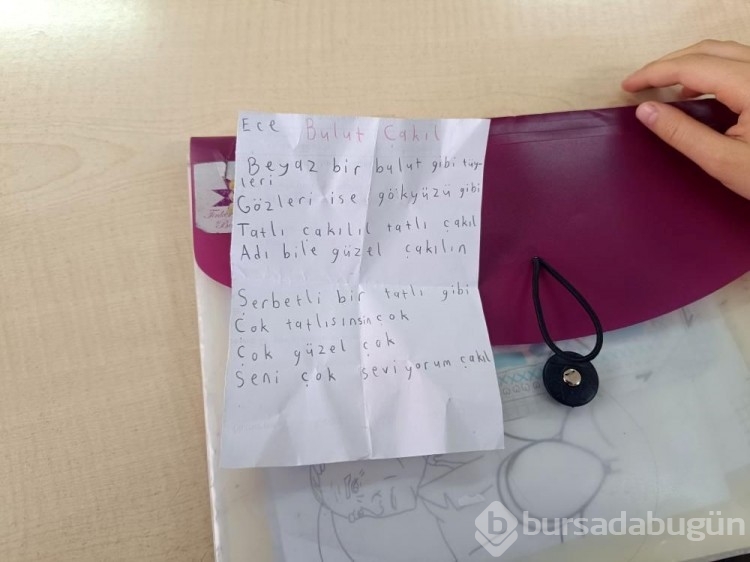 Ece Bulut Çakıl
Beyaz bir bulut gibi tüy-
leri
Gözleri ise gökyüzü gibi
Tatlı çakılıl tatlı çakıl
Adı bile güzel çakılın
Şerbetli bir tatlı gibi
Çok tatlısınsin çok
Çok güzel çok
Seni çok seviyorum çakıl
b bursadabugün